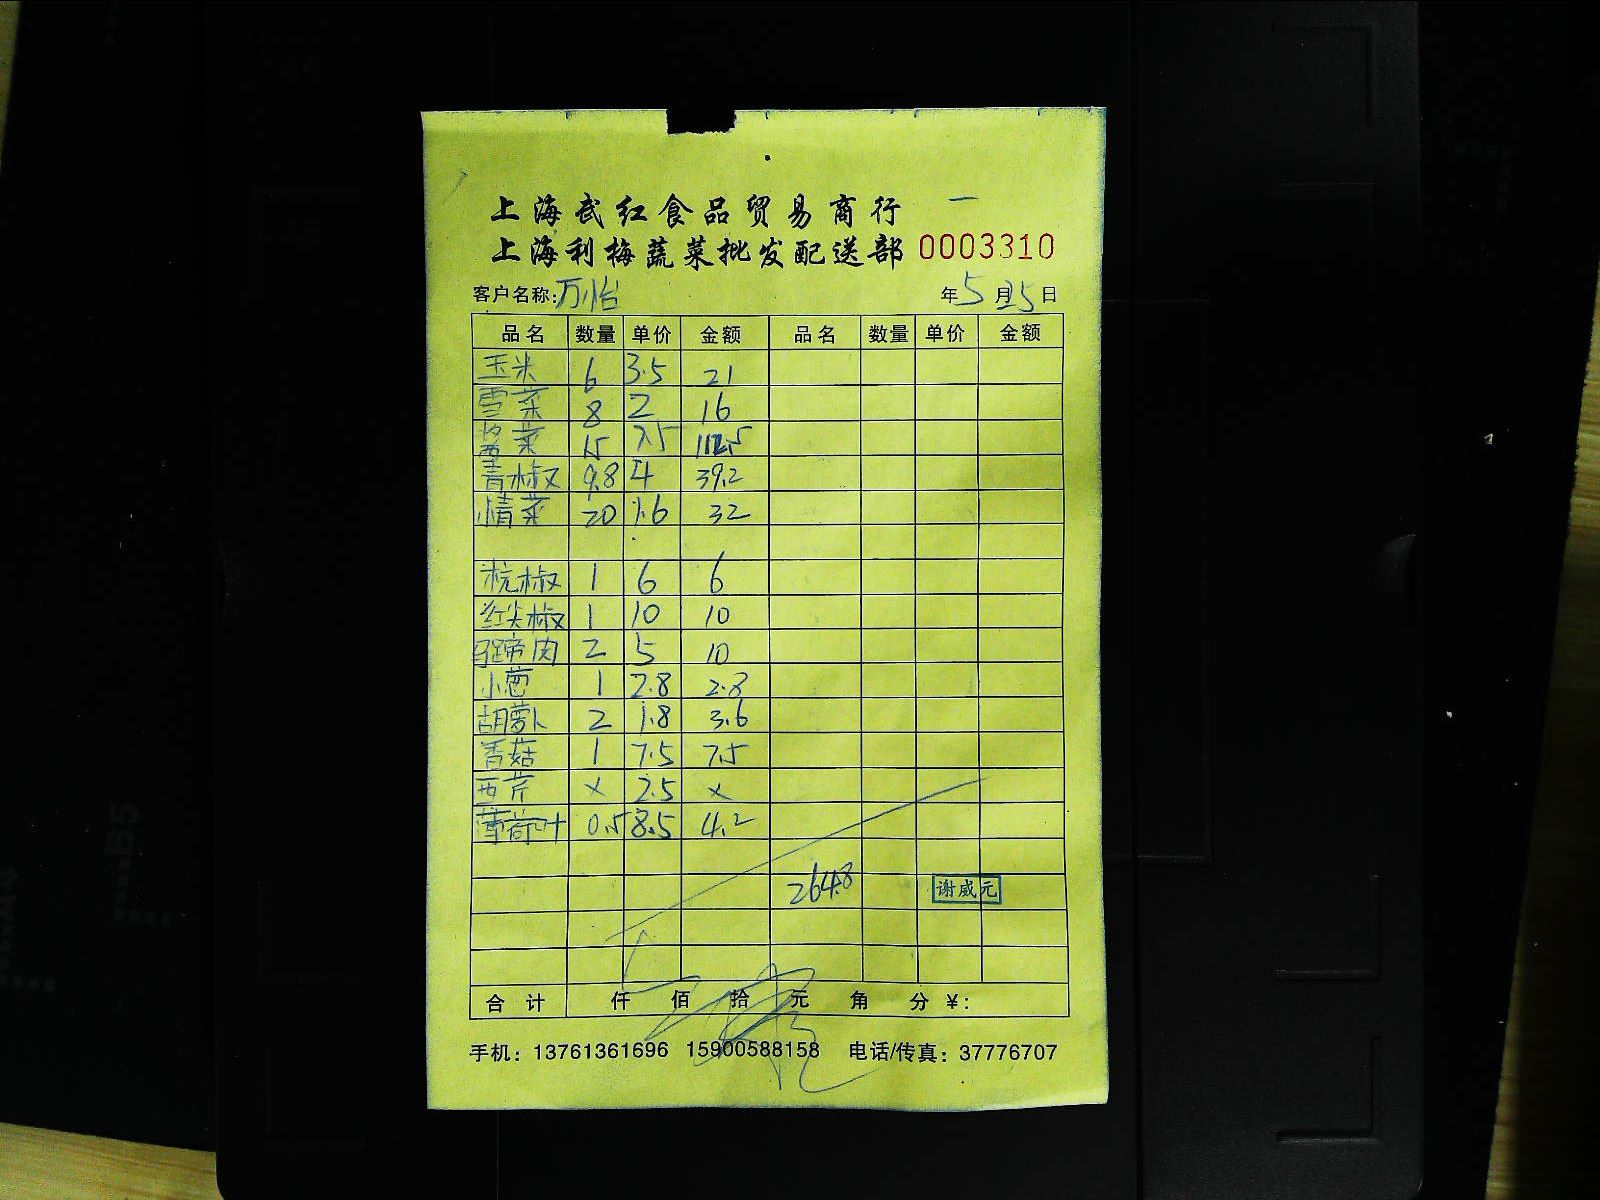 上海武红食品贸易商行
上海利梅蔬菜批发配送部 0003310
客户名称:万怡 年5月15日
品名 数量 单价 金额 品名 数量 单价 金额
玉米 6 3.5 21
雪菜 8 2 16
菜 15 7.5 112.5
青椒 9.8 4 39.2
菜 20 1.6 32
杭椒 1 6 6
红尖椒 1 10 10
马蹄肉 2 5 10
小葱 1 2.8 2.8
胡萝卜 2 1.8 3.6
香菇 1 7.5 7.5
西芹 x 2.5 x
薄荷叶 0.5 8.5 4.2
264.8 谢威元
合计 仟 佰 拾 元 角 分 ¥:
手机: 13761361696 15900588158 电话/传真: 37776707
B5
A4